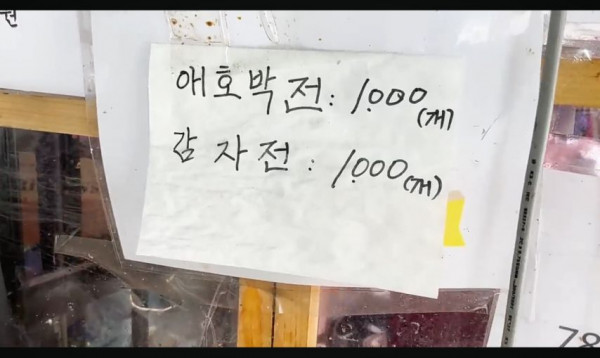 원
애호박전: 1,000(개)
감자전: 1,000(개)
78